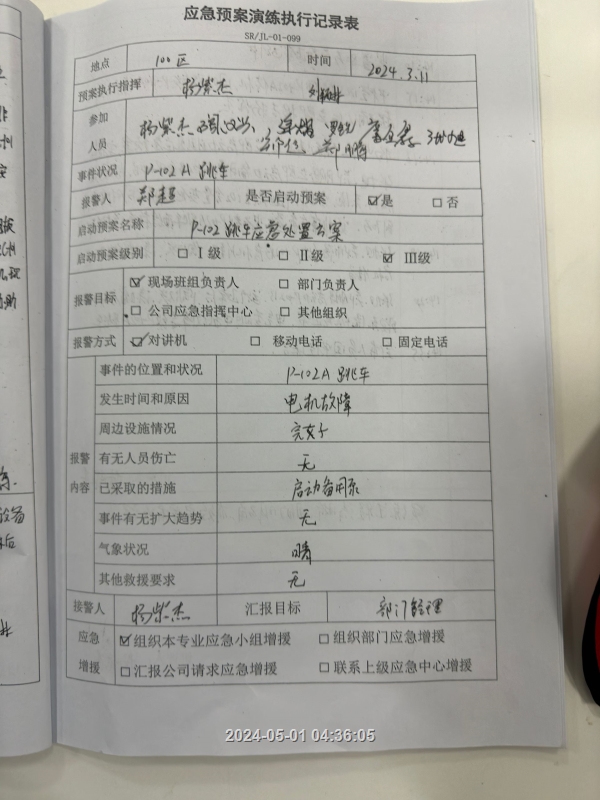 应急预案演练执行记录表
SR/JL-01-099
地点 100区 时间 2024.3.11
预案执行指挥 杨紫杰
参加人员 杨紫杰 郑鹏
事件状况 P-102A 跳车
报警人 郑超 是否启动预案 ☑是 □否
启动预案名称 P-102跳车应急处置方案
启动预案级别 □Ⅰ级 □Ⅱ级 ☑Ⅲ级
报警目标 ☑现场班组负责人 □部门负责人
□公司应急指挥中心 □其他组织
报警方式 ☑对讲机 □移动电话 □固定电话
报警内容 事件的位置和状况 P-102A 跳车
发生时间和原因 电机故障
周边设施情况 完好
有无人员伤亡 无
已采取的措施 启动备用泵
事件有无扩大趋势 无
气象状况 晴
其他救援要求 无
接警人 杨紫杰 汇报目标 部门经理
应急增援 ☑组织本专业应急小组增援 □组织部门应急增援
□汇报公司请求应急增援 □联系上级应急中心增援
2024-05-01 04:36:05